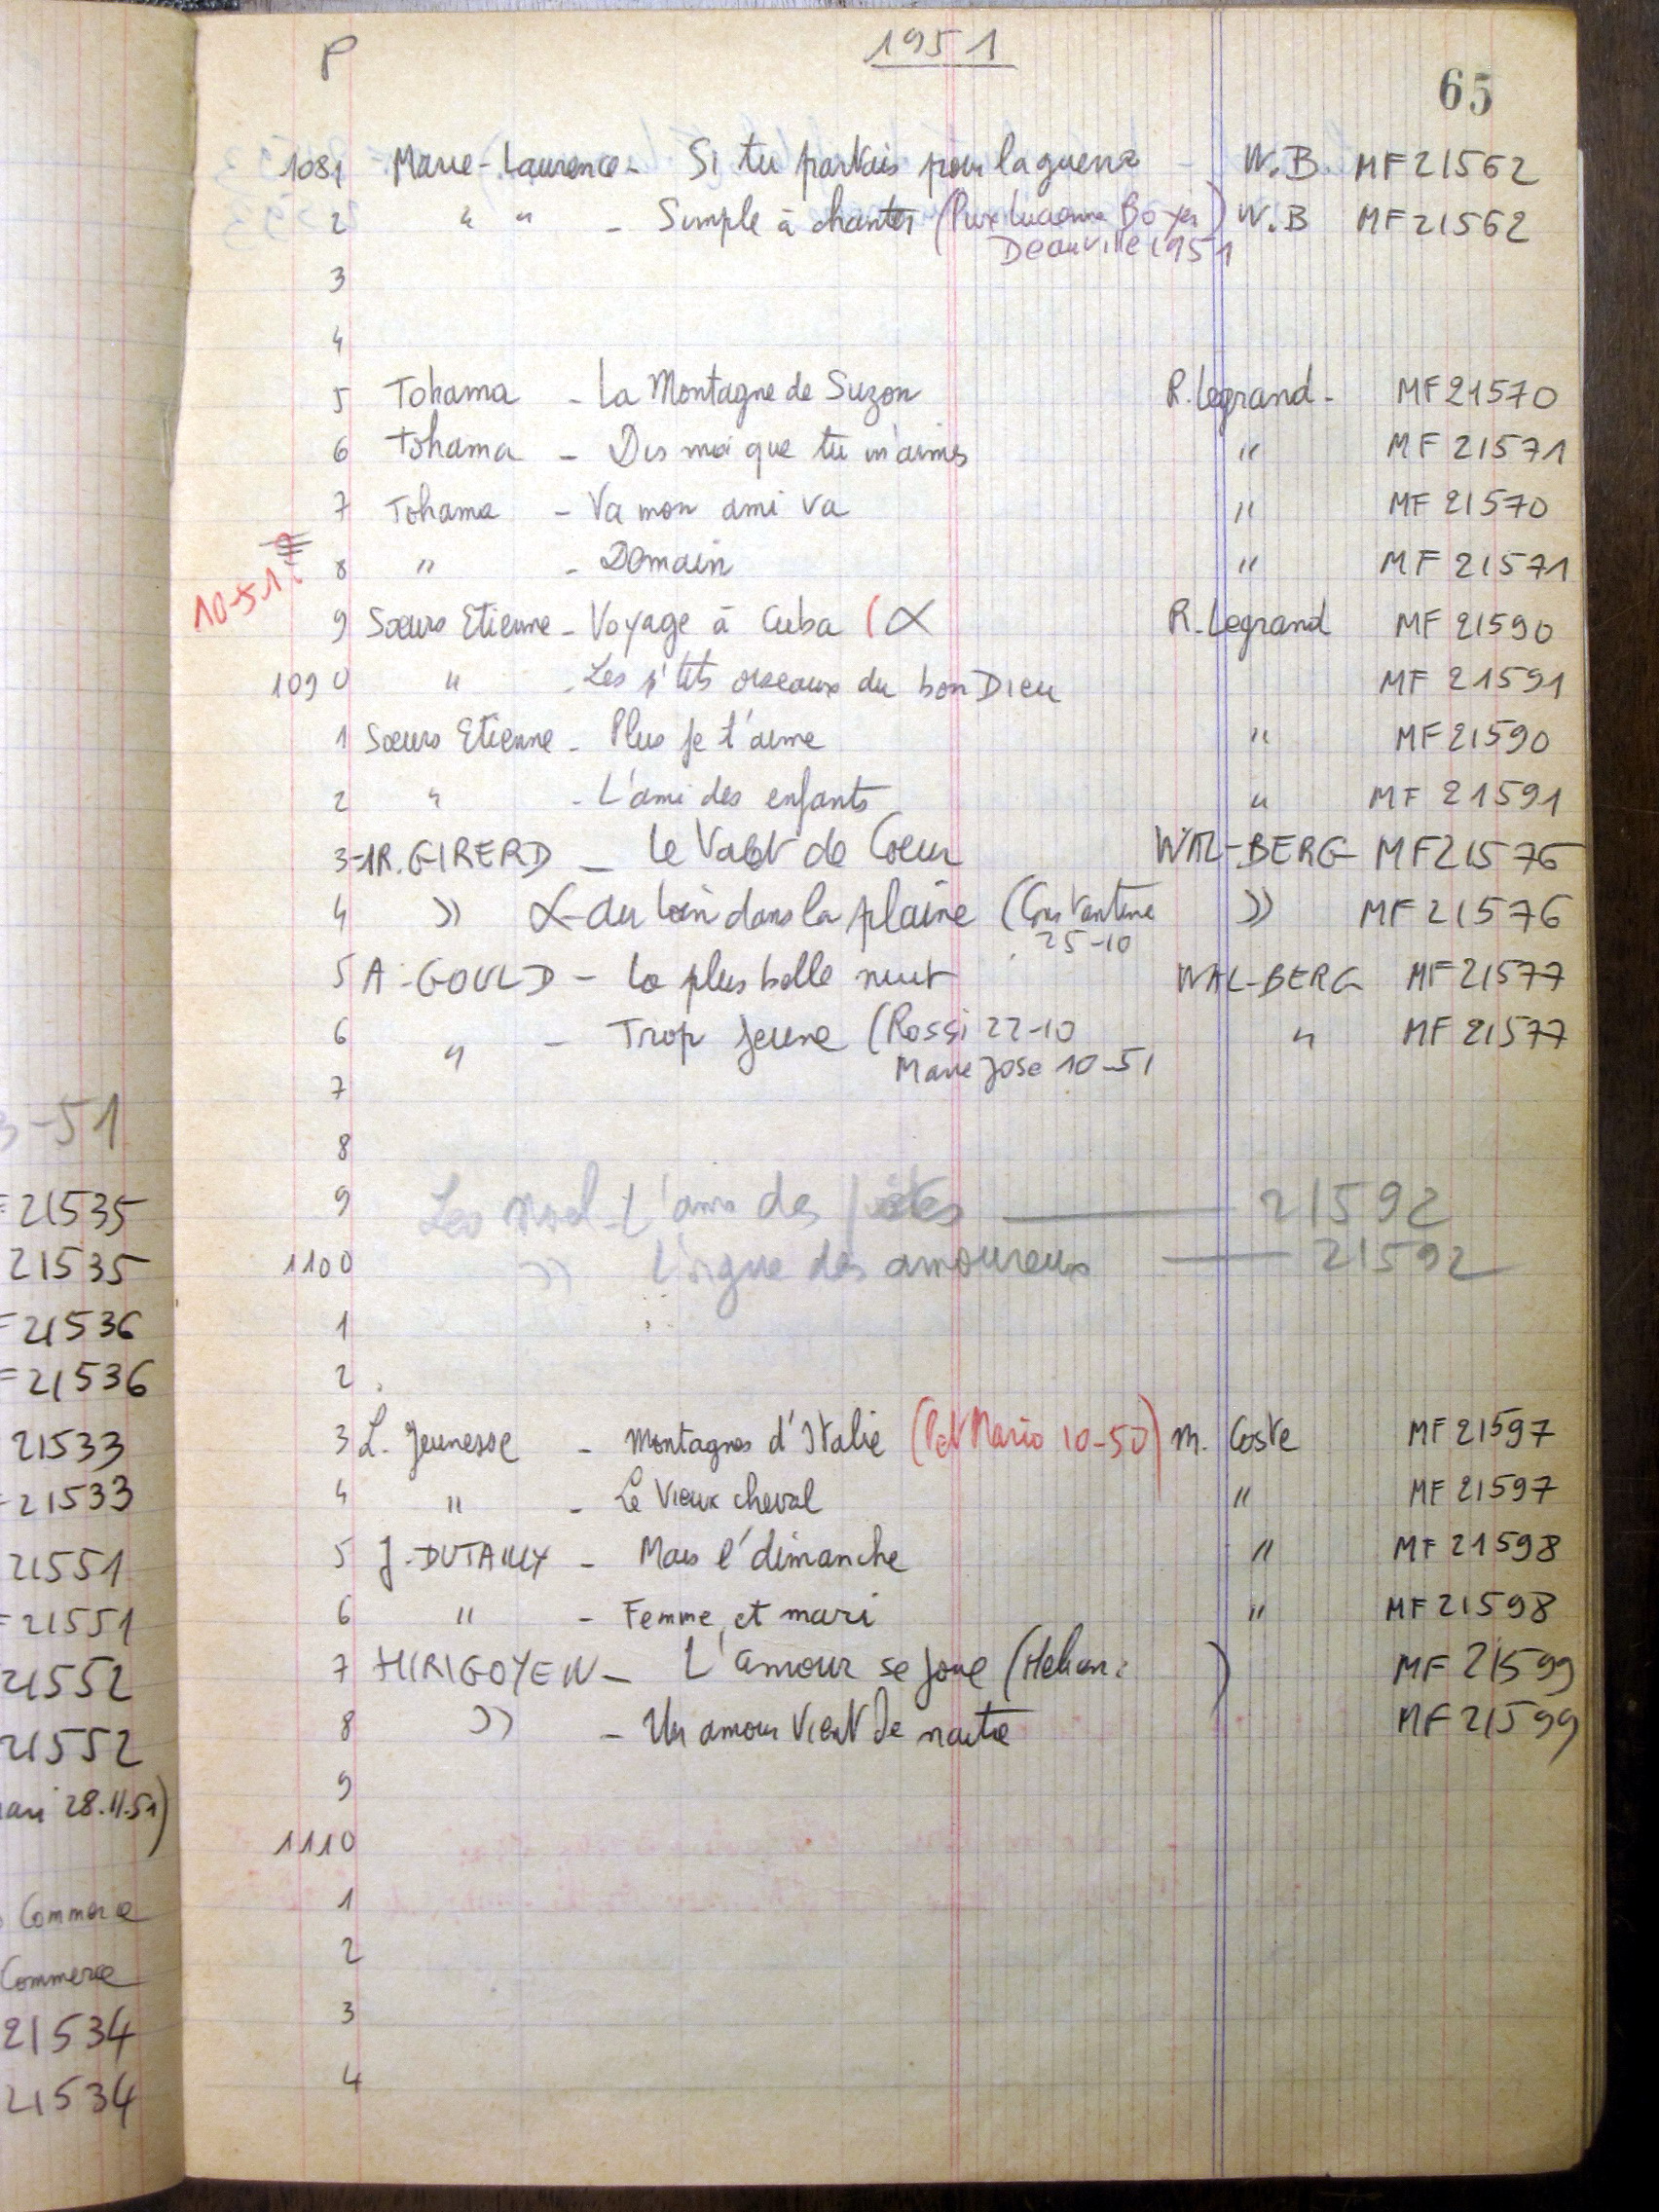 P 1951
65
1081 Marie-Laurence - Si tu partais pour la guerre - W.B. MF 21562
2 " " - Simple à chanter (Prix Lucienne Boyer) W.B MF 21562
Deauville 1951
3
4
5 Tohama - La Montagne de Suzon R. Legrand - MF 21570
6 Tohama - Dis moi que tu m'aimes " MF 21571
7 Tohama - Va mon ami va " MF 21570
8 " - Demain " MF 21571
10-51?
9 Sœurs Etienne - Voyage à Cuba ( R. Legrand MF 21590
1090 " - Les p'tits oiseaux du bon Dieu MF 21591
1 Sœurs Etienne - Plus je t'aime " MF 21590
2 " - L'ami des enfants " MF 21591
3 - R. GIRERD - Le Valet de Coeur WAL-BERG MF 21576
4 » au loin dans la plaine (Constantine » MF 21576
25-10
5 A. GOULD - La plus belle nuit WAL-BERG MF 21577
6 " - Trop jeune (Rossi 22-10 " MF 21577
Marie José 10-51
7
8
9 Leo Noel - L'ami des poètes — 21592
1100 » L'orgue des amoureux — 21592
1
2
3 L. Jeunesse - Montagnes d'Italie (Pet Mario 10-50) M. Coste MF 21597
4 " - Le Vieux cheval " MF 21597
5 J. DUTAILLY - Mais l'dimanche " MF 21598
6 " - Femme et mari " MF 21598
7 HIRIGOYEN - L'amour se joue ( ) MF 21599
8 » - Un amour vient de naitre MF 21599
9
1110
1
2
3
4
-51
21535
21535
21536
21536
21533
21533
21551
21551
21552
21552
28.11.51)
Commerce
Commerce
21534
21534